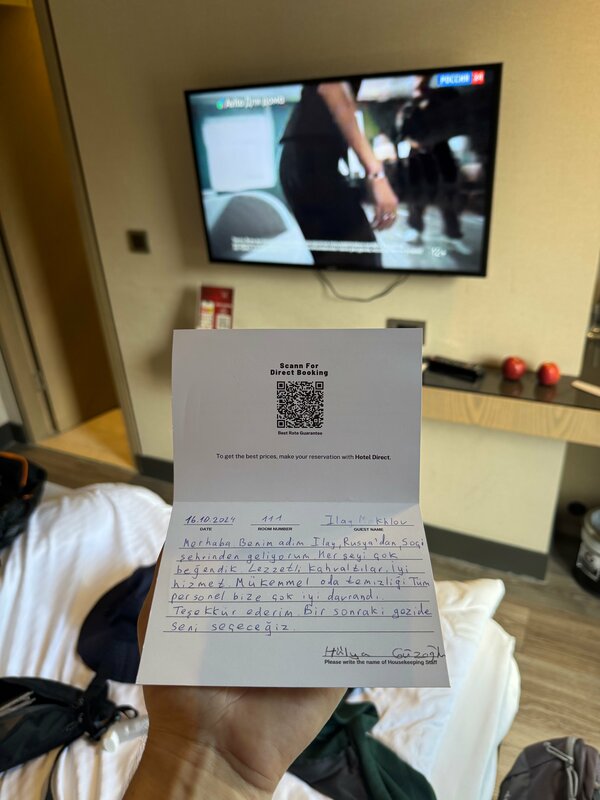 РОССИЯ 24
Для дома
Scann For
Direct Booking
Best Rate Guarantee
To get the best prices, make your reservation with Hotel Direct.
16.10.2024 111 Ilay
DATE ROOM NUMBER GUEST NAME
Merhaba Benim adim Ilay, Rusya'dan Soçi
şehrinden geliyorum Her şeyi çok
beğendik Lezzetli kahvaltılar, iyi
hizmet. Mükemmel oda temizliği Tüm
personel bize çok iyi davrandı.
Teşekkür ederim. Bir sonraki gezide
seni seçeceğiz.
Hülya
Please write the name of Housekeeping Staff